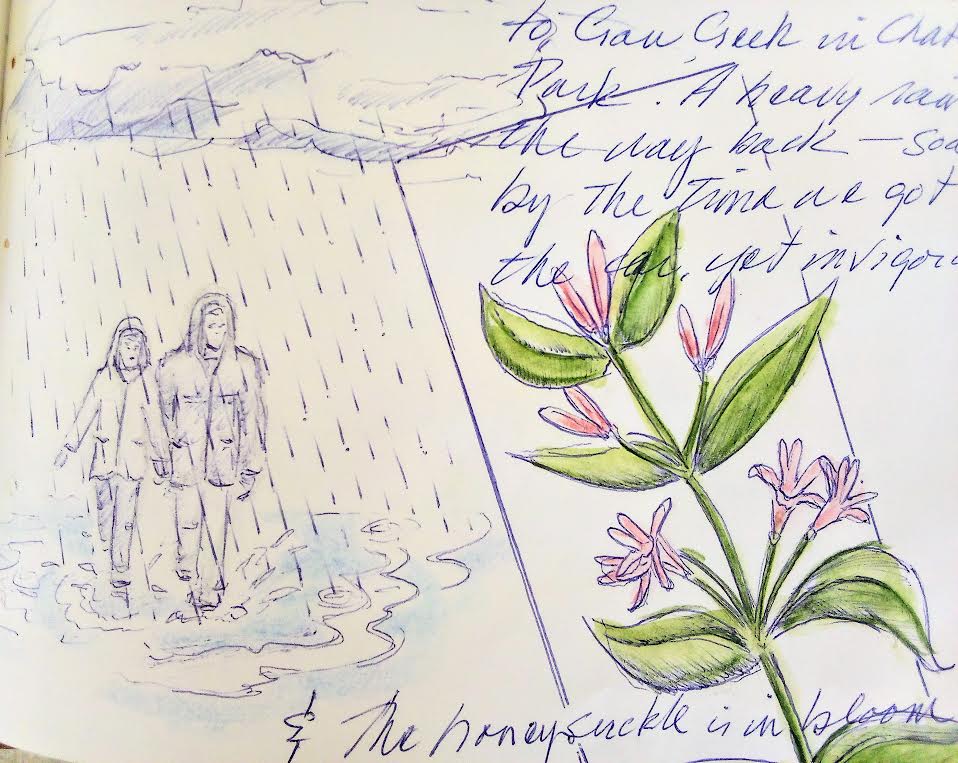 to, Crow Creek in Chat
Park. A heavy rai
the way back — soa
by the time we got
the car, yet invigor
& The honeysuckle is in bloom